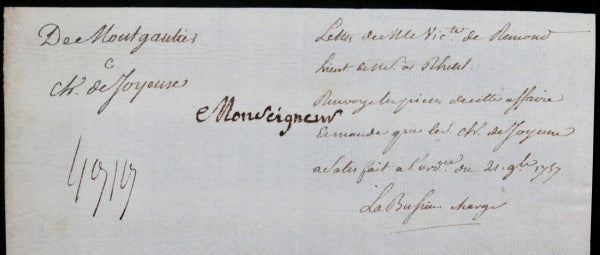 De Montgautier
C
Ch. de Joyeuse
4919
Monseigneur
Lettre de Mr le Victe de Remond
Lieut de Mrs a Rhetel.
Renvoye les pieces de cette affaire
Et mande que le Chr. de Joyeuse
a satisfait a l'ordre du 21. 9bre 1757
La Bussiere chargé